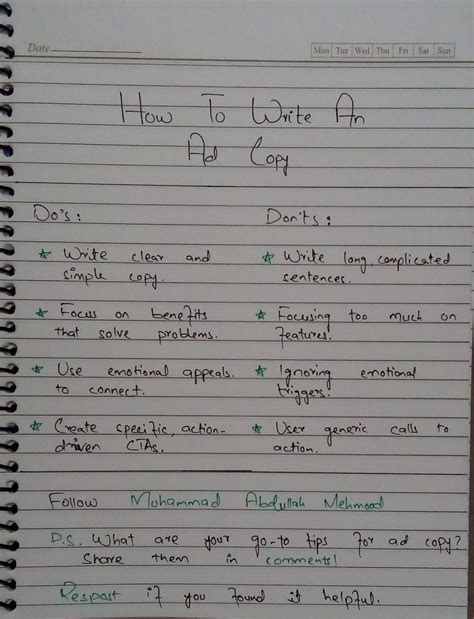 Date
Mon Tue Wed Thu Fri Sat Sun
How To Write An
Ad Copy
Do's:
☆ Write clear and
simple copy.
☆ Focus on benefits
that solve problems.
☆ Use emotional appeals.
to connect.
☆ Create specific, action-
driven CTAs.
Don'ts:
☆ Write long, complicated
sentences.
☆ Focusing too much on
features.
☆ Ignoring emotional
triggers.
☆ User generic calls to
action.
Follow Muhammad Abdullah Mehmood
P.S. What are your go-to tips for ad copy?
Share them in comments!
Respost if you found it helpful.